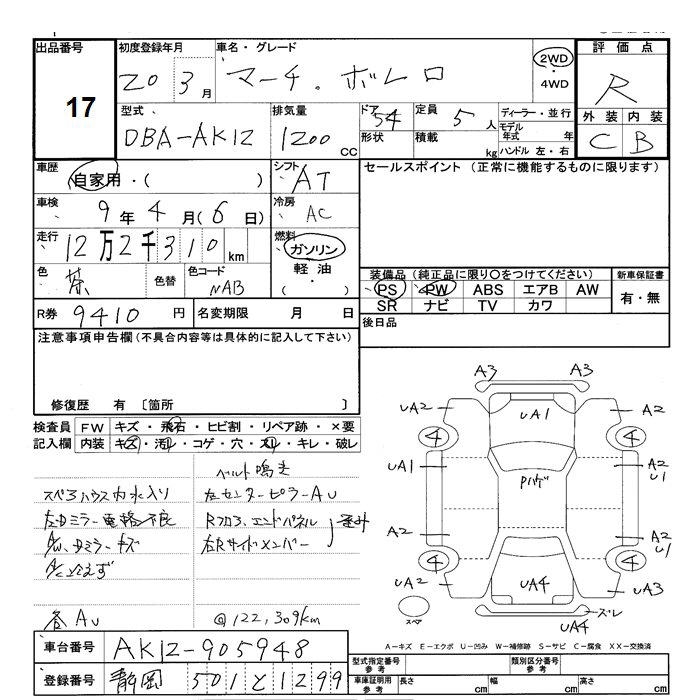 出品番号
17
初度登録年月
20 3月
車名・グレード
マーチ. ボレロ
2WD
・
4WD
評価点
R
外装 内装
C B
型式
DBA-AK12
排気量
1200 CC
ドア
54
形状
定員
5人
積載
kg
ディーラー・並行
モデル年式 年
ハンドル 左・右
車歴
自家用・( )
シフト
AT
セールスポイント (正常に機能するものに限ります)
車検
9年4月(6日)
冷房
AC
走行
12万2千310km
燃料
ガソリン
・
軽油
・
( )
色
茶
色替
色コード
NAB
装備品 (純正品に限り○をつけてください)
PS PW ABS エアB AW
SR ナビ TV カワ
新車保証書
有・無
R券 9410円
名変期限 月 日
後日品
注意事項申告欄 (不具合内容等は具体的に記入して下さい)
修復歴 有 〔箇所 〕
検査員
記入欄
FW キズ・飛石・ヒビ割・リペア跡・×要
内装 キズ・汚レ・コゲ・穴・スレ・キレ・破レ
ベルト鳴き
スペアハウス内水入り
左センターピラーAU
左Dミラー電格不良
Rフロア、エンドパネル
左Rサイドメンバー
歪み
A/W、Dミラーキズ
A/C冷えず
各AU
@122,309km
A3 A3
UA2 UA1 A2
4 4
UA1 Pハゲ A2
U1
A2 A2
U1
4 4
UA2 UA4 UA3
スペア
ズレ
UA4
A-キズ E-エクボ U-凹み W-補修跡 S-サビ C-腐食 XX-交換済
車台番号
AK12-905948
登録番号
静岡 501と1299
型式指定番号
参考
類別区分番号
参考
車庫証明用
参考
長さ cm
幅 cm
高さ cm